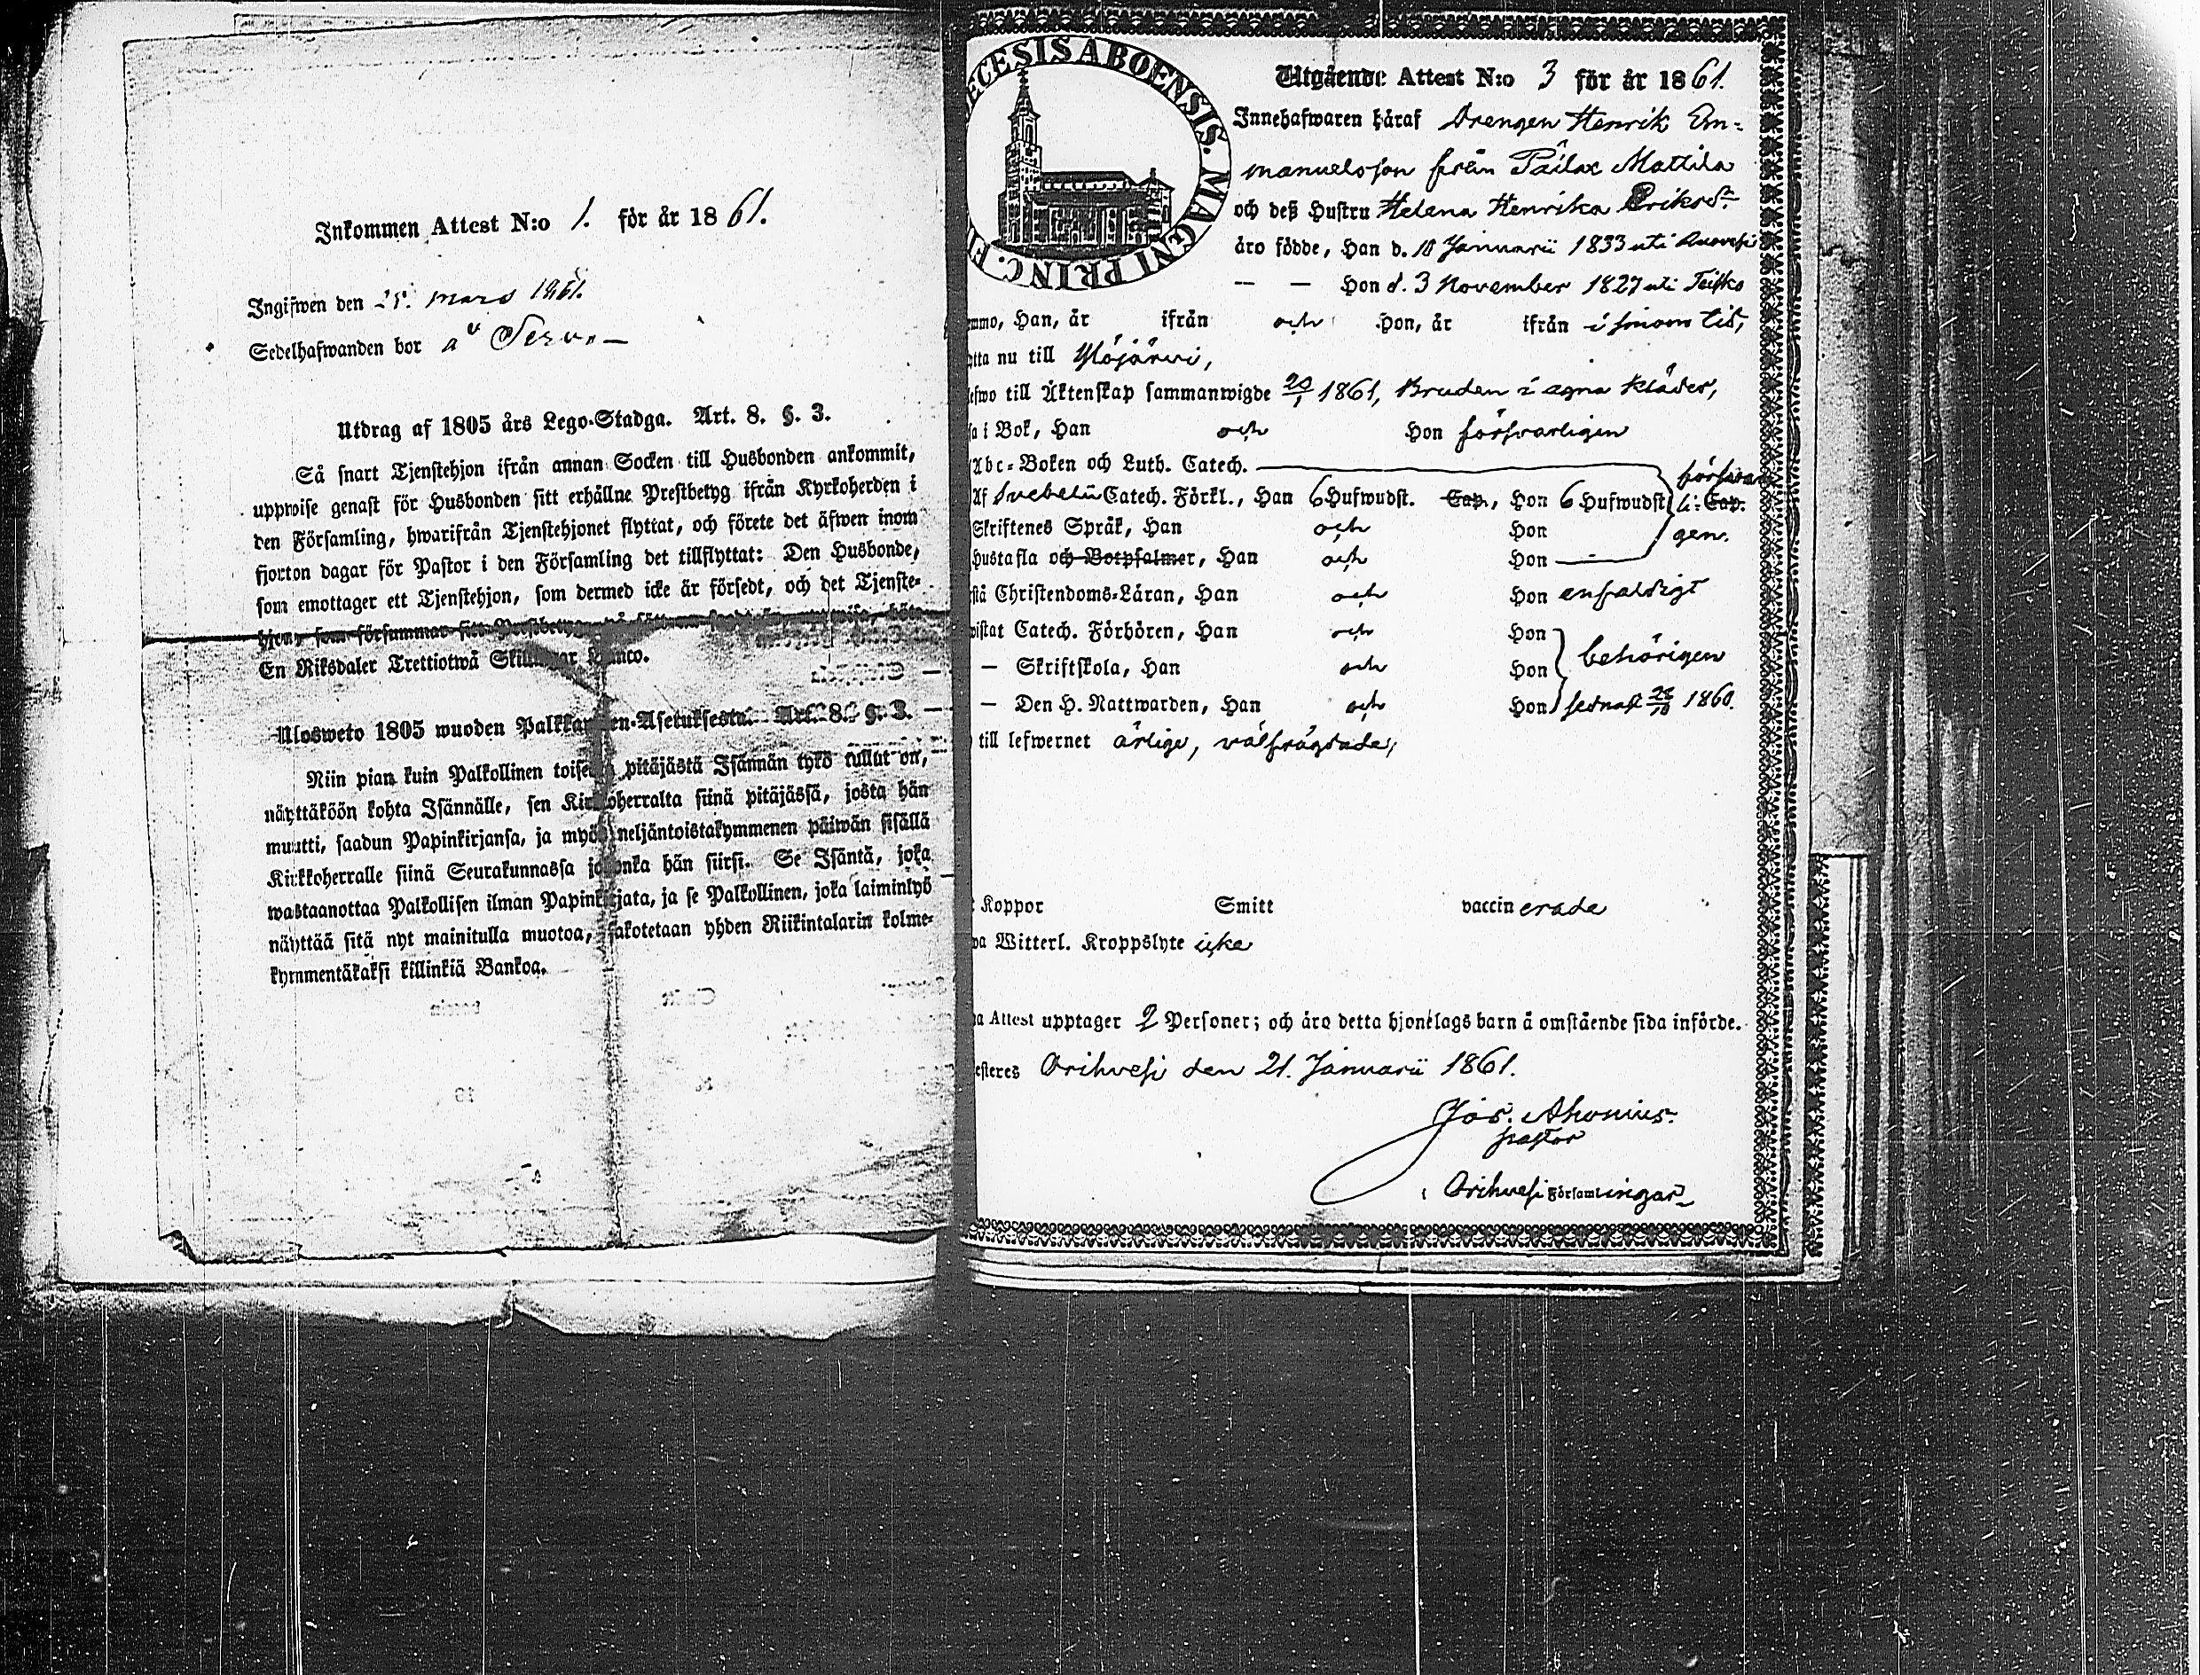 Inkommen Attest N:o 1. för år 1861.
Ingifwen den 25. mars 1861.
Sedelhafwanden bor å
Utdrag af 1805 års Lego-Stadga. Art. 8. §. 3.
Så snart Tjenstehjon ifrån annan Socken till Husbonden ankommit,
uppwise genast för Husbonden sitt erhållne Prestbetyg ifrån Kyrkoherden i
den Församling, hwarifrån Tjenstehjonet flyttat, och förete det äfwen inom
fjorton dagar för Pastor i den Församling det tillflyttat: Den Husbonde,
som emottager ett Tjenstehjon, som dermed icke är försedt, och det Tjenste-
hjon, som försummar sitt Prestbetyg
En Riksdaler Trettiotwå Skillingar Banco.
Ulosweto 1805 wuoden Palkkawäen-Asetuksesta. Art. 8. §. 3.
Niin pian kuin Palkollinen toisesta pitäjästä Isännän tykö tullut on,
näyttäköön kohta Isännälle, sen Kirkkoherralta siinä pitäjässä, josta hän
muutti, saadun Papinkirjansa, ja myös neljäntoistakymmenen päiwän sisällä
Kirkkoherralle siinä Seurakunnassa johonka hän siirsi. Se Isäntä, joka
wastaanottaa Palkollisen ilman Papinkirjata, ja se Palkollinen, joka laiminlyö
näyttää sitä nyt mainitulla muotoa, sakotetaan yhden Riikintalarin kolme-
kymmentäkaksi killinkiä Bankoa.
ECESIS ABOENSIS. MAGNI PRINC. FI
Utgående Attest N:o 3 för år 1861.
Innehafwaren häraf Drengen Henrik Em-
manuelsson från Pailax Mattila
och deß Hustru Helena Henrika Eriksdr
äro födde, Han d. 10 Januarii 1833 uti Ruovesi
— — Hon d. 3 November 1827 uti Teisko
Han, är ifrån och Hon, är ifrån i sinom tid,
nu till Ylöjärwi,
till Äktenskap sammanwigde 20/1 1861, Bruden i egna kläder,
i Bok, Han och Hon försvarligen
Abc-Boken och Luth. Catech. försvar
Af Svebelii Catech. Förkl., Han 6 Hufwudst. Cap., Hon 6 Hufwudst. li- Cap.
Skriftenes Språk, Han och Hon gen.
Hustafla och Botpsalmer, Han och Hon
Christendoms-Läran, Han och Hon enfaldigt
Catech. Förhören, Han och Hon
— Skriftskola, Han och Hon behörigen
— Den H. Nattwarden, Han och Hon sednast 28/10 1860.
till lefwernet ärlige, välfrägdade,
Koppor Smitt vaccinerade
Witterl. Kroppslyte icke
Attest upptager 2 Personer; och äro detta hjonelags barn å omstående sida införde.
Orihvesi den 21. Januarii 1861.
Jos. Ahonius.
pastor
i Orihvesi Församlingar